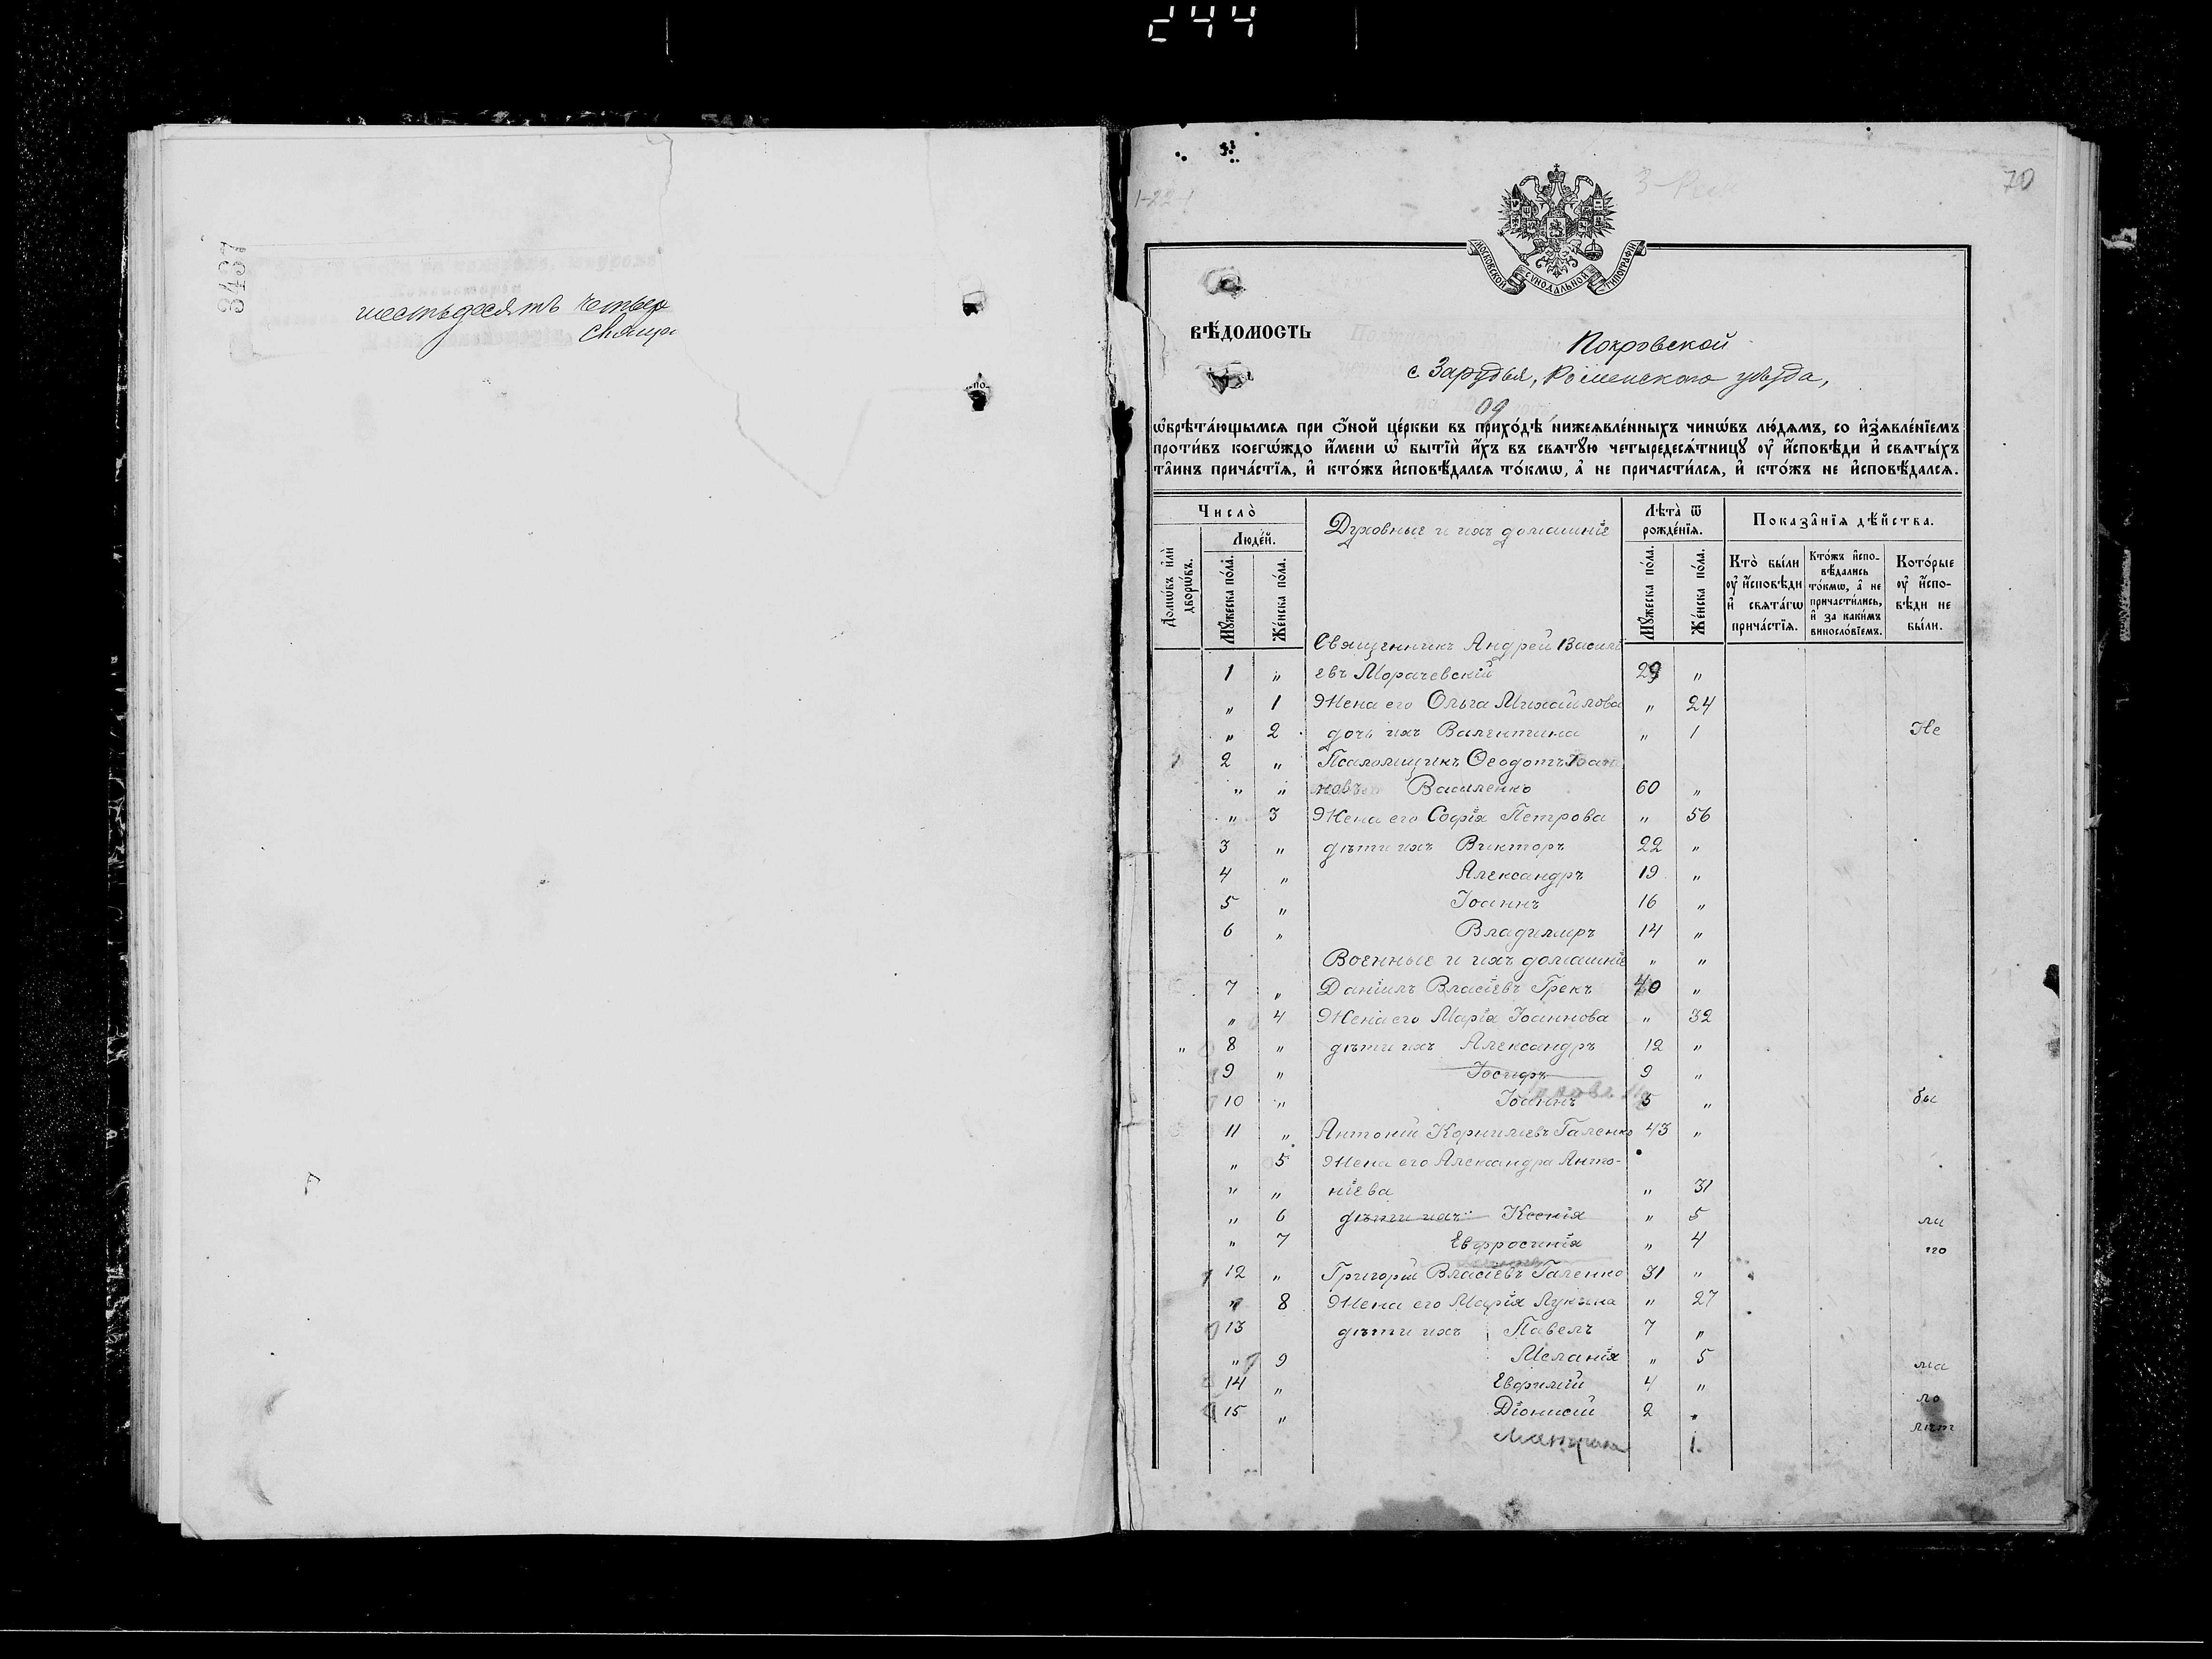 244
3437
шестьдесятъ четыр
70
МОСКОВСКОЙ СѴНОДАЛЬНОЙ ТИПОГРАФІИ
ВѢДОМОСТЬ
Покровской
с Зарудья, Роменскаго уѣзда,
09
ѡ҆брѣта́ющымсѧ при ѻ҆́ной це́ркви въ прихо́дѣ нижеѧвле́нныхъ чинѡ́въ лю́демъ, со и҆з̾ѧвле́нїемъ
проти́въ коегѡ́ждо и҆́мени ѡ҆ бытїѝ и҆́хъ въ свѧту́ю четыредесѧ́тницꙋ ᲂу҆ и҆́сповѣди и҆ свѧты́хъ
та̑инъ прича́стїѧ, и҆ кто́жъ и҆сповѣ́далсѧ то́кмѡ, а҆ не причасти́лсѧ, и҆ кто́жъ не и҆сповѣ́далсѧ.
Число̀
Люде́й.
Домѡ́въ и҆лѝ дворѡ́въ.
Мꙋ́жеска по́ла.
Же́нска по́ла.
Духовные и ихъ домашніе
Лѣта̀ ѿ рожде́нїѧ.
Мꙋ́жеска по́ла.
Же́нска по́ла.
Показа̑нїѧ дѣ́йства.
Кто̀ бы́ли ᲂу҆ и҆́сповѣди и҆ свѧта́гѡ прича́стїѧ.
Кто́жъ и҆спо-вѣ́дались то́кмѡ, а҆ не причасти́лись, и҆ за каки́мъ виносло́вїемъ.
Кото́рые ᲂу҆ и҆́спо-вѣди не бы́ли.
Священникъ Андрей Василь
1 " евъ Морачевскій 29 "
" 1 Жена его Ольга Михайлова " 24
" 2 дочь ихъ Валентина " 1 Не
2 " Псаломщикъ Ѳеодотъ Іоан
" " новъ Василенко 60 "
" 3 Жена его Софія Петрова " 56
3 " дѣти ихъ Викторъ 22 "
4 " Александръ 19 "
5 " Іоаннъ 16 "
6 " Владимиръ 14 "
Военные и ихъ домашніе " "
7 " Даніилъ Власіевъ Грекъ 40 "
" 4 Жена его Марія Іоаннова " 32
" 8 " дѣти ихъ Александръ 12 "
9 " Іосифъ 9 "
10 " Іоаннъ 5 " бы
11 " Антоній Корниліевъ Галенко 43 "
" 5 Жена его Александра Анто-
" " ніева " 31
" 6 дѣти ихъ: Ксенія " 5 ли
" 7 Евфросинія " 4 по
12 " Григорій Власіевъ Галенко 31 "
" 8 Жена его Марія Лукина " 27
13 дѣти ихъ Павелъ 7 "
" 9 Меланія " 5 ма
14 " Евфимій 4 " ло
15 " Діонисій 2 " лѣт
1.